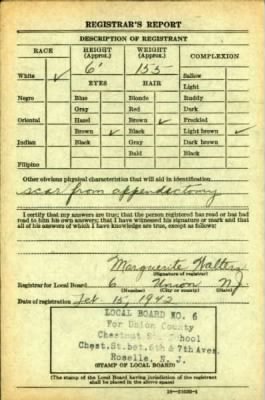 REGISTRAR'S REPORT
DESCRIPTION OF REGISTRANT
RACE HEIGHT (Approx.) WEIGHT (Approx.) COMPLEXION
6' 155
White ✓ Sallow
EYES HAIR Light
Negro Blue Blonde Ruddy
Gray Red Dark
Oriental Hazel Brown ✓ Freckled
Brown ✓ Black Light brown ✓
Indian Black Gray Dark brown
Bald Black
Filipino
Other obvious physical characteristics that will aid in identification
scar from appendectomy
I certify that my answers are true; that the person registered has read or has had
read to him his own answers; that I have witnessed his signature or mark and that
all of his answers of which I have knowledge are true, except as follows:
Marguerite Walters
(Signature of registrar)
Registrar for Local Board 6 Union N.J.
(Number) (City or county) (State)
Date of registration Feb. 15, 1942
LOCAL BOARD NO. 6
For Union County
Chestnut School
Chest. St. bet. 6th & 7th Aves.
Roselle, N. J.
(STAMP OF LOCAL BOARD)
(The stamp of the Local Board having jurisdiction of the registrant
shall be placed in the above space)